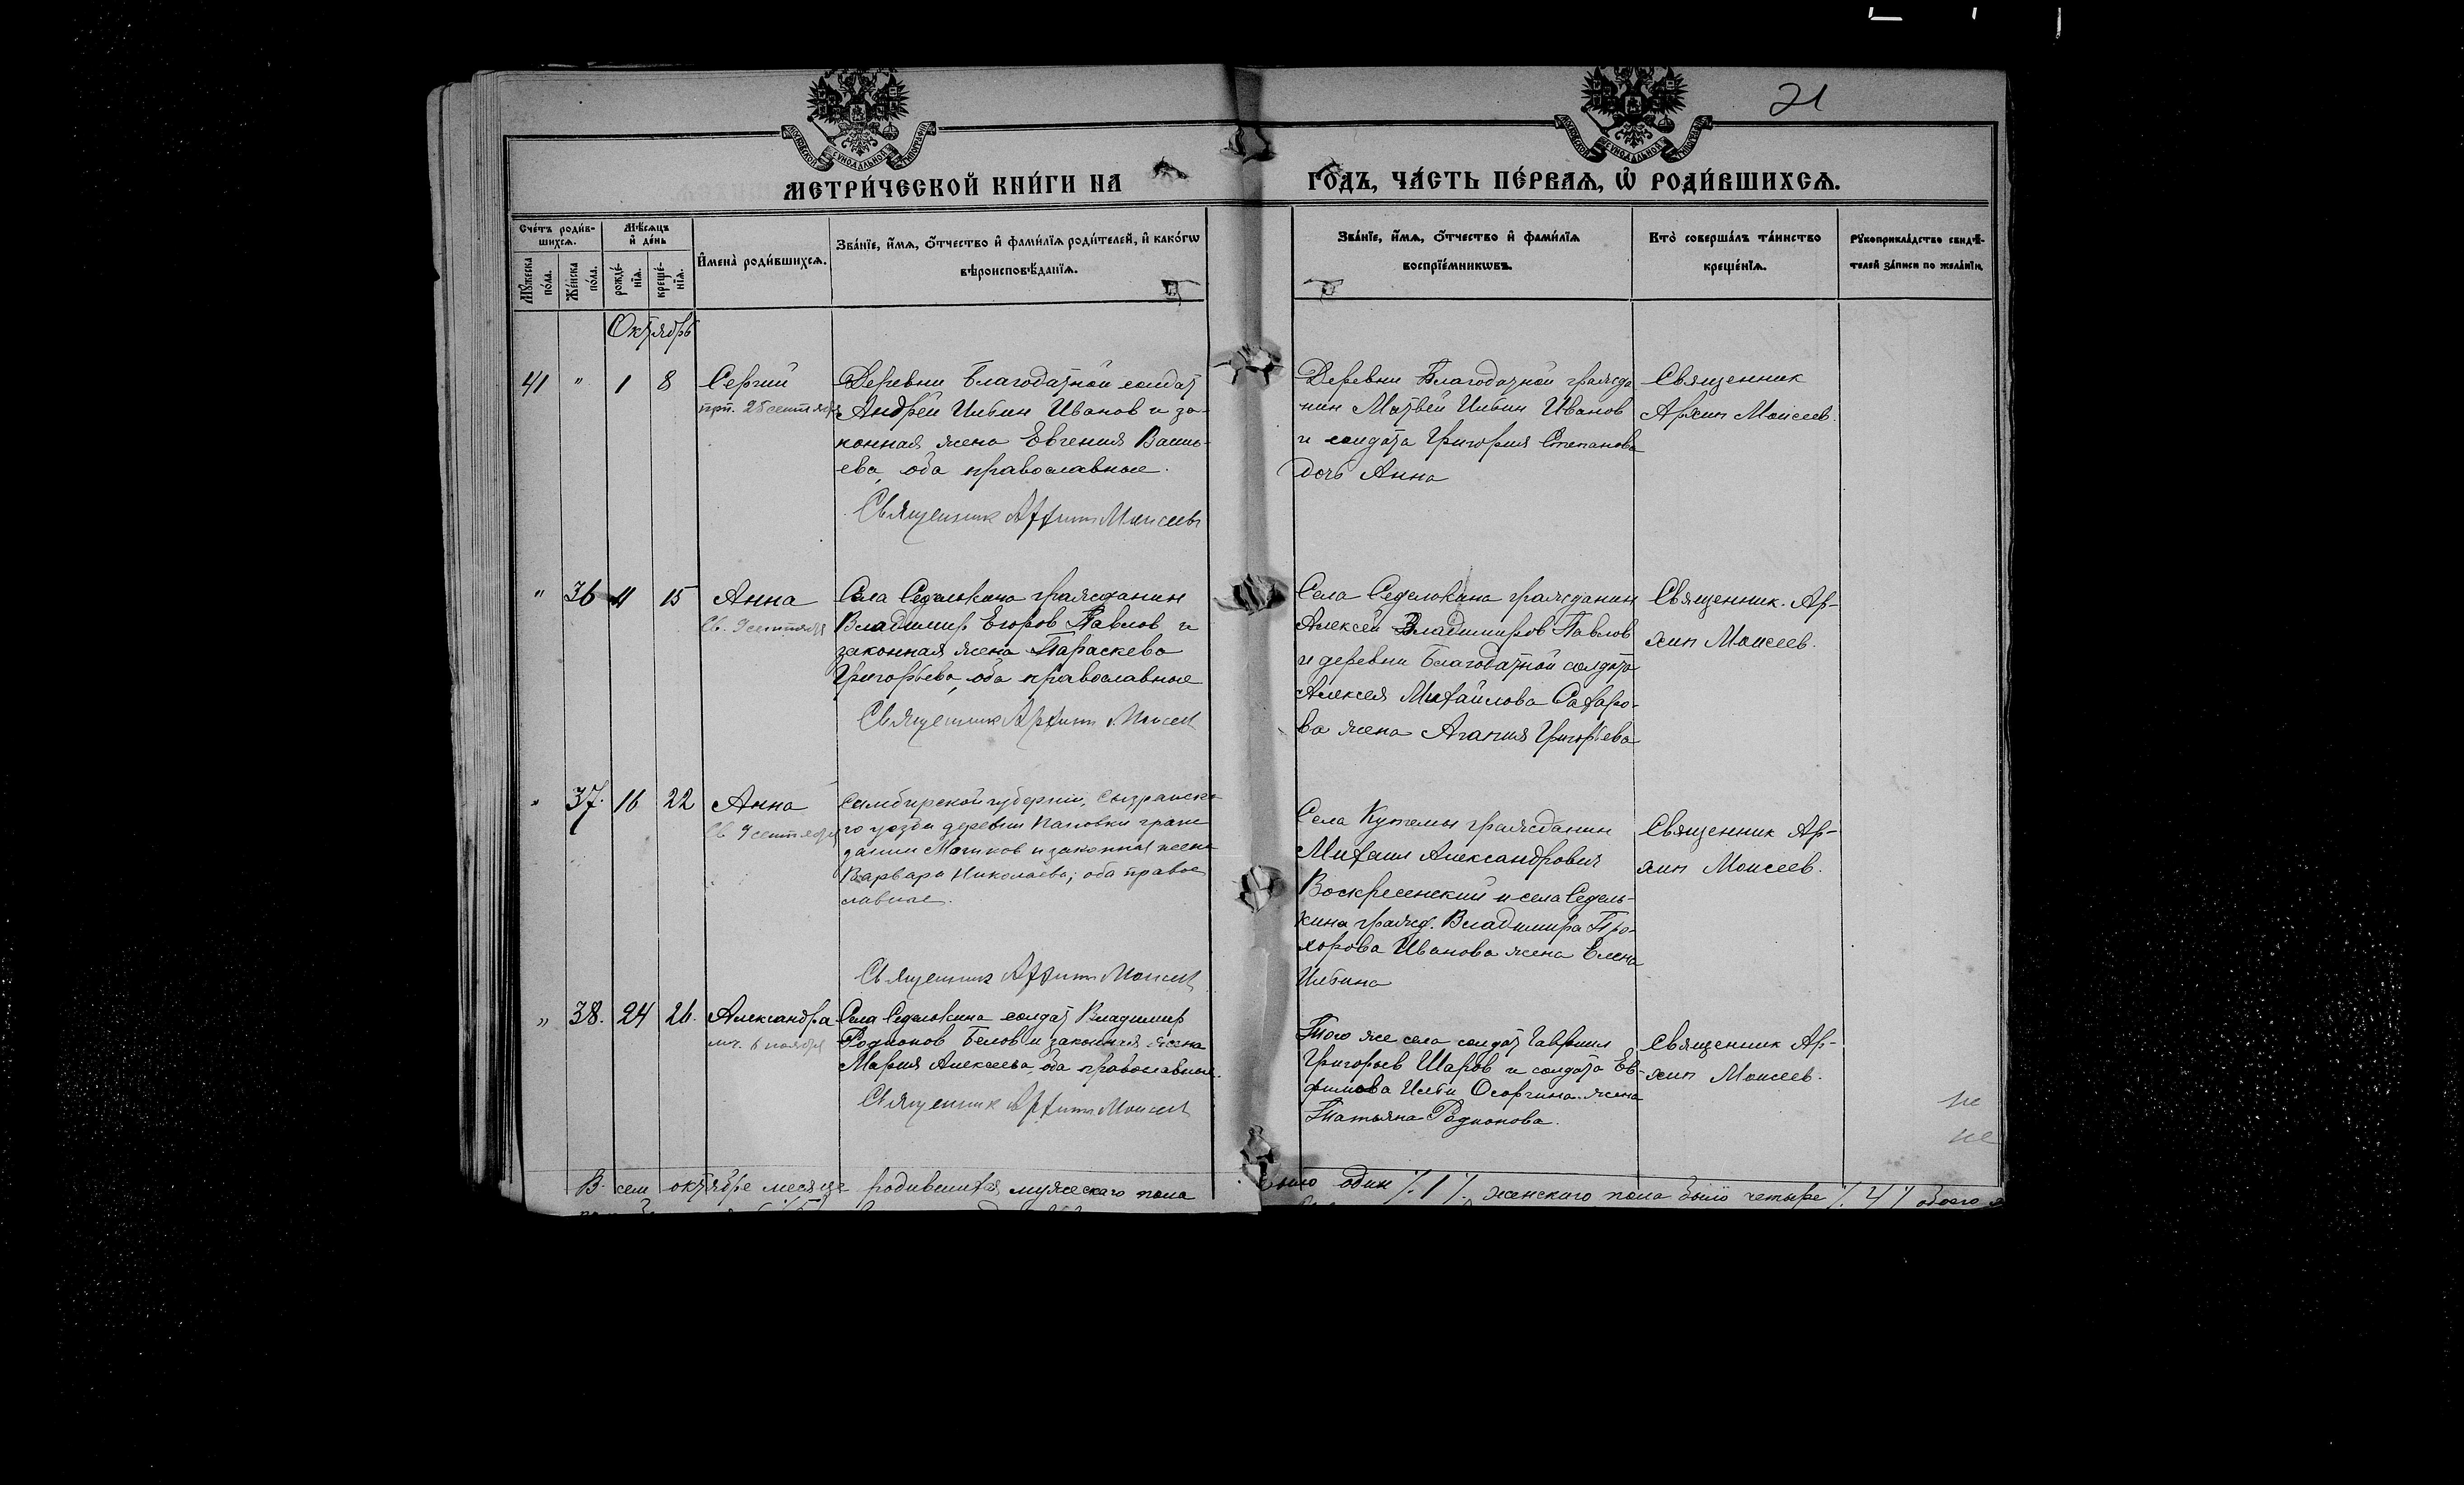 21
МОСКОВСКОЙ СѴНОДАЛЬНОЙ ТИПОГРАФІИ
МОСКОВСКОЙ СѴНОДАЛЬНОЙ ТИПОГРАФІИ
МЕТРИ́ЧЕСКОЙ КНИ́ГИ НА
ГО́ДЪ, ЧА́СТЬ ПЕ́РВАЯ, Ѡ РОДИ́ВШИХСЯ.
Сче́тъ роди́в-
шихся.
Му́жеска
по́ла.
Же́нска
по́ла.
Мѣ́сяцъ
и҆ де́нь
рожде́-
нїя.
креще́-
нїя.
И҆мена̀ роди́вшихся.
Зва́нїе, и҆́мя, ѻ҆́тчество и҆ фами́лїя роди́телей, и҆ како́гѡ
вѣроисповѣ́данїя.
Зва́нїе, и҆́мя, ѻ҆́тчество и҆ фами́лїя
воспрїе́мникѡвъ.
Кто̀ соверша́лъ та́инство
креще́нїя.
Рꙋкоприкла́дство свидѣ́-
телей за́писи по жела́нїю
Октябрь
41 " 1 8
Сергий
прп. 25 сентября
Деревни Благодатной солдат
Андрей Ильин Иванов и за-
конная жена Евгения Василь-
ева, оба православные.
Священник Архип Моисеев
Деревни Благодатной гражда
нин Матвей Ильин Иванов
и солдата Григория Степанова
дочь Анна
Священник
Архип Моисеев.
" 36 11 15
Анна
Св. 9 сентября
Села Седелькина гражданин
Владимир Егоров Павлов и
законная жена Параскева
Григорьева, оба православные
Священник Архип Моисеев
Села Седелькина гражданин
Алексей Владимиров Павлов
и деревни Благодатной солдата
Алексея Михайлова Сахаро-
ва жена Агапия Григорьева
Священник. Ар-
хип Моисеев.
" 37. 16 22
Анна
Св. 9 сентября
Симбирской губернии, Сызранско
го уезда деревни граж
данин и законная жена
Варвара Николаева; оба право
славные.
Священник Архип Моисеев
Села Кутемы гражданин
Михаил Александрович
Воскресенский и села Седель-
кина гражд. Владимира Про-
хорова Иванова жена Елена
Ильина
Священник Ар-
хип Моисеев.
" 38. 24 26.
Александра
мч. 6 ноября
Села Седелькина солдат Владимир
Родионов Белов и законная жена
Мария Алексеева, оба православные.
Священник Архип Моисеев
Того же села солдат Гавриил
Григорьев Шаров и солдата Ев-
фимова Ильи Осоргина жена
Татьяна Родионова.
Священник Ар-
хип Моисеев.
не
не
В сем октябре месяце родившихся мужескаго пола
было один /.1/. женскаго пола было четыре /.4/ обоего